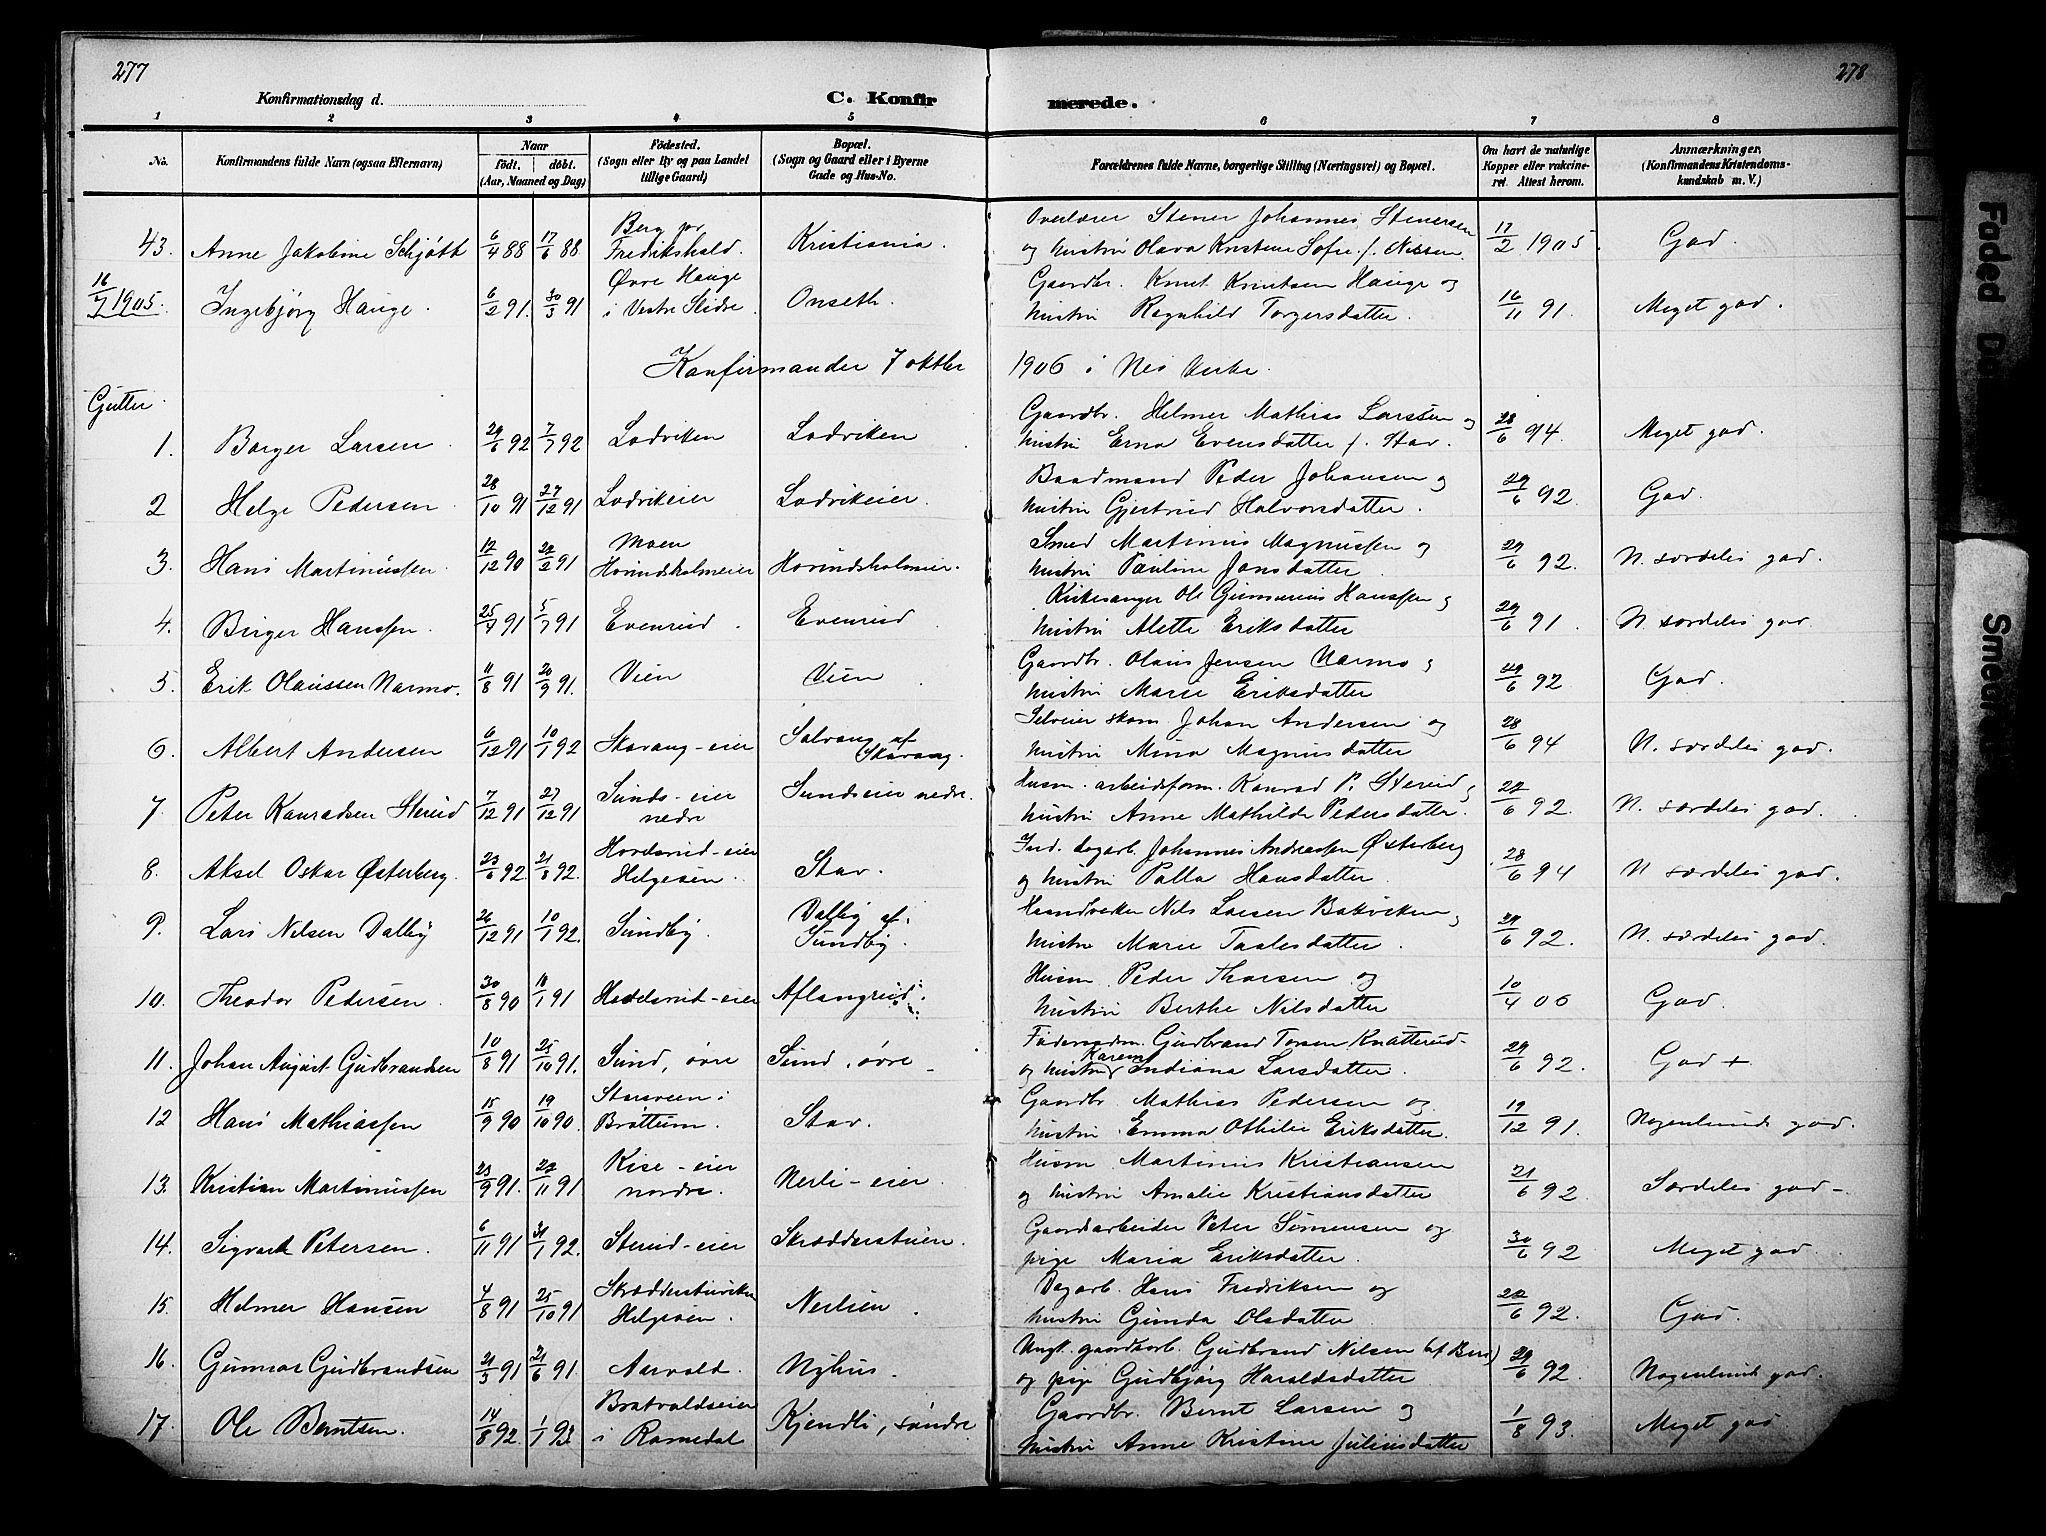 277
278
Konfirmationsdag d.
C. Konfir
merede.
1 2 3 4 5 6 7 8
No. Konfirmandens fulde Navn (ogsaa Efternavn) Naar født, døbt. (Aar, Maaned og Dag) Fødested. (Sogn eller By og paa Landet tillige Gaard) Bopæl. (Sogn og Gaard eller i Byerne Gade og Hus-No. Forældrenes fulde Navne, borgerlige Stilling (Næringsvei) og Bopæl. Om havt de naturlige Kopper eller vakcineret. Attest herom. Anmærkninger. (Konfirmandens Kristendomskundskab m. V.)
43. Anne Jakobine Schjøtt 6/4 88 17/6 88 Berg pr Fredrikshald. Kristiania. Overlærer Stener Johannes Stenersen og hustru Olava Kristine Sofie f. Nilssen 17/2 1905. God.
16/7 1905 Ingebjørg Hauge. 6/2 91. 30/3 91 Øvre Hauge i Vestre Slidre. Onseth. Gaardbr. Knut Knutsen Hauge og hustru Ragnhild Torgersdatter. 16/11 91. Meget god.
Konfirmander 7 oktbr 1906 i Nes Kirke.
Gutter.
1. Borger Larsen. 29/6 92 7/7 92 Lodviken Lodviken Gaardbr. Helmer Mathias Larssen og hustru Erna Evensdatter f. Stav. 28/6 94. Meget god.
2 Helge Pedersen. 28/10 91 27/12 91 Lodvikeier Lodvikeier. Baadmand Peder Johansen og hustru Gjertrud Halvorsdatter. 29/6 92. God.
3. Hans Martinussen. 12/12 90 22/2 91 Moen Hovindsholmeier Hovindsholmeier. Smed Martinus Magnussen og hustru Pauline Jonsdatter. 29/6 92. N. særdeles god.
4. Birger Hanssen. 25/4 91 5/7 91 Evenrud. Evenrud Kirkesanger Ole Gunnerius Hanssen og hustru Alette Eriksdatter 29/6 91. N. særdeles god
5. Erik Olaussen Narmo. 11/8 91 20/9 91. Vien Vien Gaardbr. Olaus Jensen Narmo og hustru Marie Eriksdatter 29/6 92 God.
6. Albert Andersen 6/12 91 10/1 92 Skavang-eier Solvang af Skavang. Selveier skom. Johan Andersen og hustru Mina Magnusdatter 28/6 94 N. særdeles god.
7. Peter Konradsen Sterud 7/12 91 27/12 91 Sunds-eier nedre Sundseier nedre. Husm. arbeidsform. Konrad P. Sterud og hustru Anne Mathilde Pedersdatter. 22/6 92. N. særdeles god.
8. Aksel Oskar Østerberg. 23/6 92. 21/8 92. Hovelsrud-eier Helgøen. Stav. Ind. dagarb. Johannes Andreassen Østerberg og hustru Palla Hansdatter. 28/6 94 N særdeles god.
9. Lars Nilsen Dalby 26/12 91 10/1 92. Sundby. Dalby af Sundby. Haandverker Nils Larsen Bakviken og hustru Marie Taalesdatter. 29/6 92. N. særdeles god.
10. Theodor Pedersen. 30/8 90 18/1 91 Hovelsrud-eier Aflangrud. Husm Peder Thorsen og hustru Berthe Nilsdatter 10/4 06 God.
11. Johan August Gudbrandsen 10/8 91 25/10 91. Sund, øvre Sund, øvre Føderaadsm. Gudbrand Torsen Knatterud og hustru Karen Indiana Larsdatter. 29/6 92. God +
12 Hans Mathiassen 15/9 90 19/10 90. i Brøttum. Stav. Gaardbr. Mathias Pedersen og hustru Emma Othilie Eriksdatter. 19/12 91. Nogenlunde god.
13. Kristian Martinussen 23/9 91. 22/11 91 Kise-eier nordre. Nerli-eier. Husm Martinus Kristiansen og hustru Amalie Kristiansdatter 21/6 92 Særdeles god
14. Sigvart Petersen. 6/11 91 31/1 92. Sterud-eier Skrædderstuen. Gaardsarbeider Peter Simensen og pige Maria Eriksdatter. 30/6 92 Meget god
15. Helmer Hansen 4/8 91 25/10 91 Skrædderstuviken Helgøen. Nerlien. Dagarb. Hans Fredriksen og hustru Gunda Olsdatter. 22/6 92. God.
16. Gunnar Gudbrandsen 21/5 91 21/6 91. Aarvold. Nyhus. Ungk. gaardarb. Gudbrand Nilsen og pige Gudbjørg Haraldsdatter 29/6 92. Nogenlunde god.
17. Ole Berntsen. 14/8 92. 1/1 93 Brotvoldseier i Romedal Kjendli, søndre Gaardbr. Bernt Larsen og hustru Anne Kristine Juliusdatter 1/8 93. Meget god
Faded